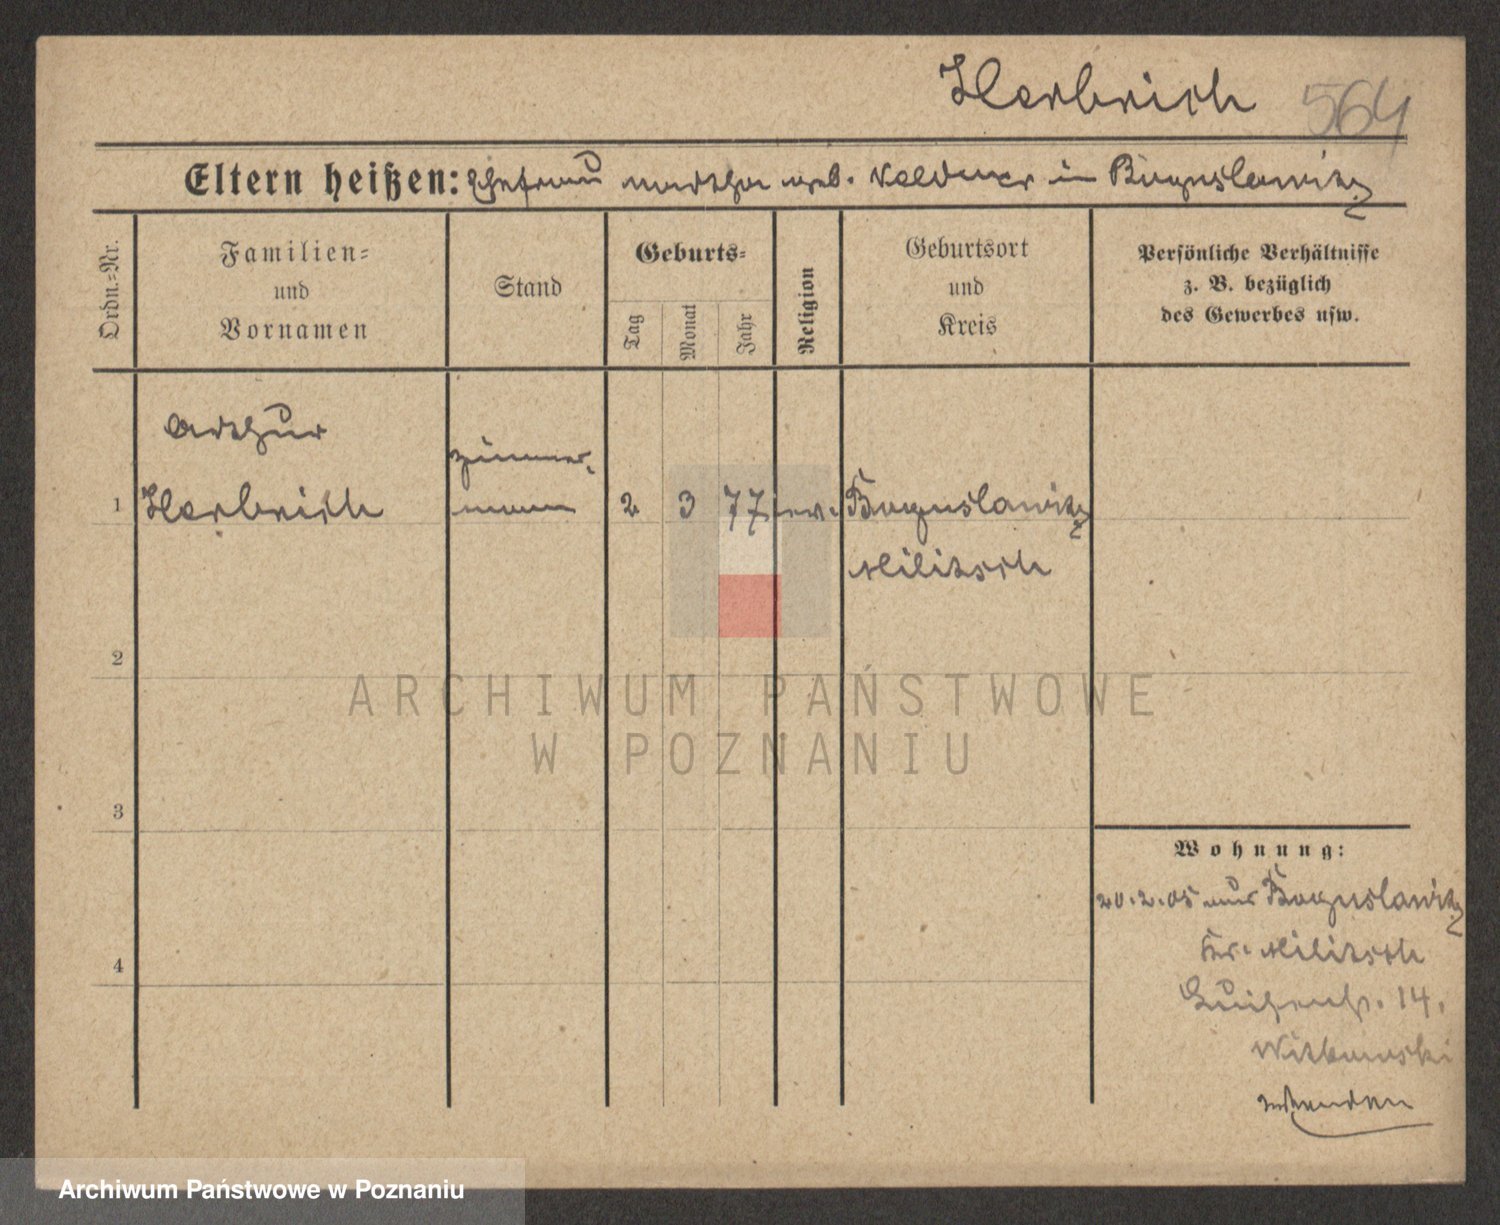 Herbrich 564
Eltern heißen: Ehefrau Martha geb. in Boguslawitz
Ordn.-Nr.
Familien-
und
Vornamen
Stand
Geburts-
Tag
Monat
Jahr
Religion
Geburtsort
und
Kreis
Persönliche Verhältnisse
z. B. bezüglich
des Gewerbes usw.
Arthur
Zimmer-
1 Herbrich mann 2 3 77 ev. Boguslawitz
Militsch
2
ARCHIWUM PAŃSTWOWE
W POZNANIU
3
Wohnung:
20.2.05 aus Boguslawitz
Kr. Militsch
14.
Witkowski
4
Archiwum Państwowe w Poznaniu